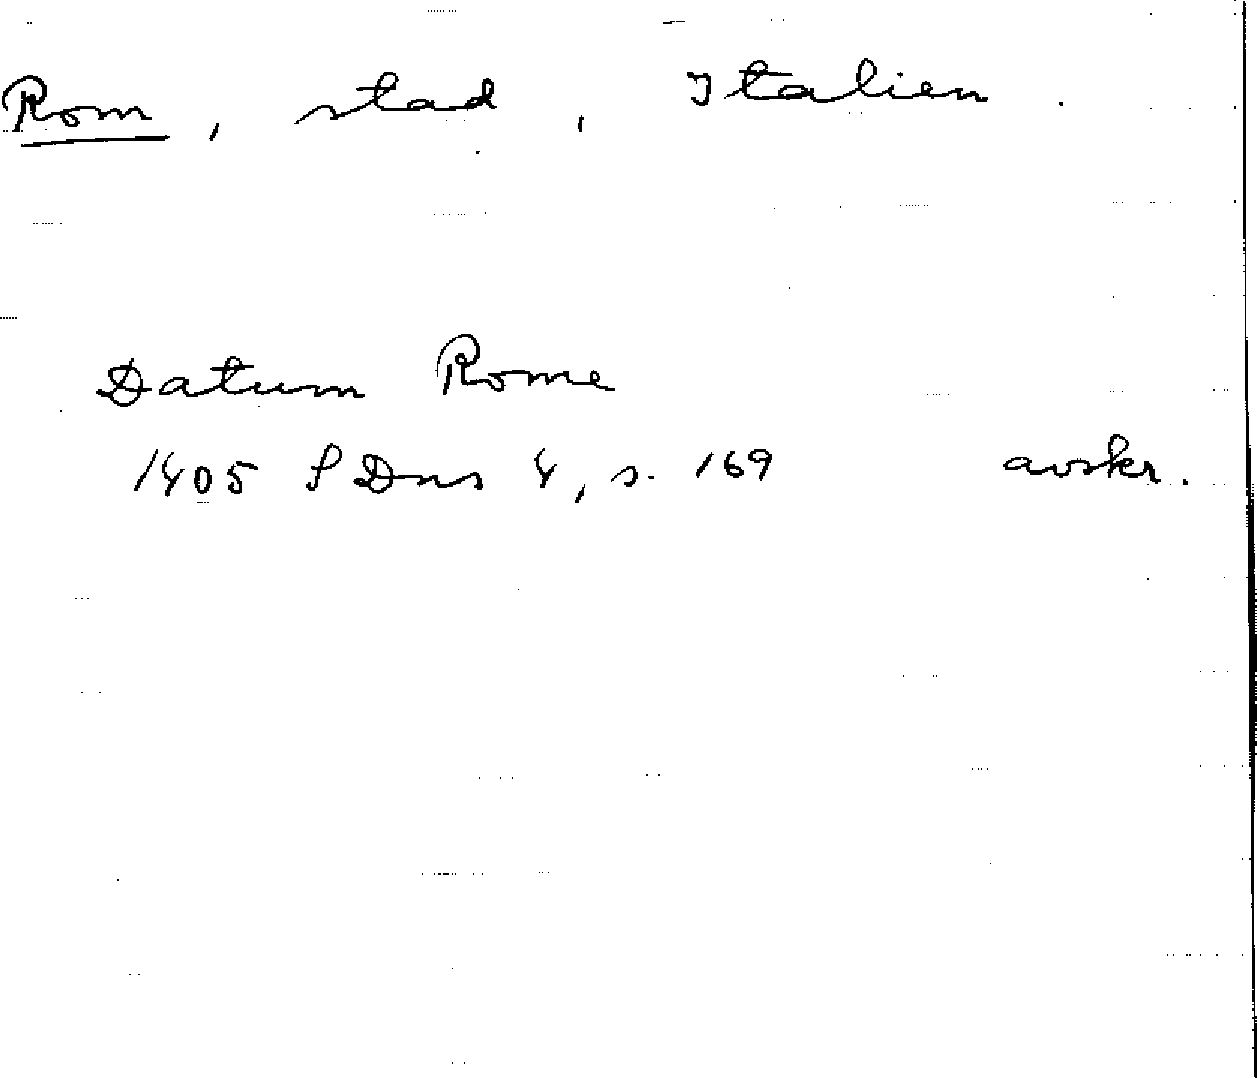 Rom, stad, Italien.
Datum Rome
1405 SDns 4, s. 169 avskr.